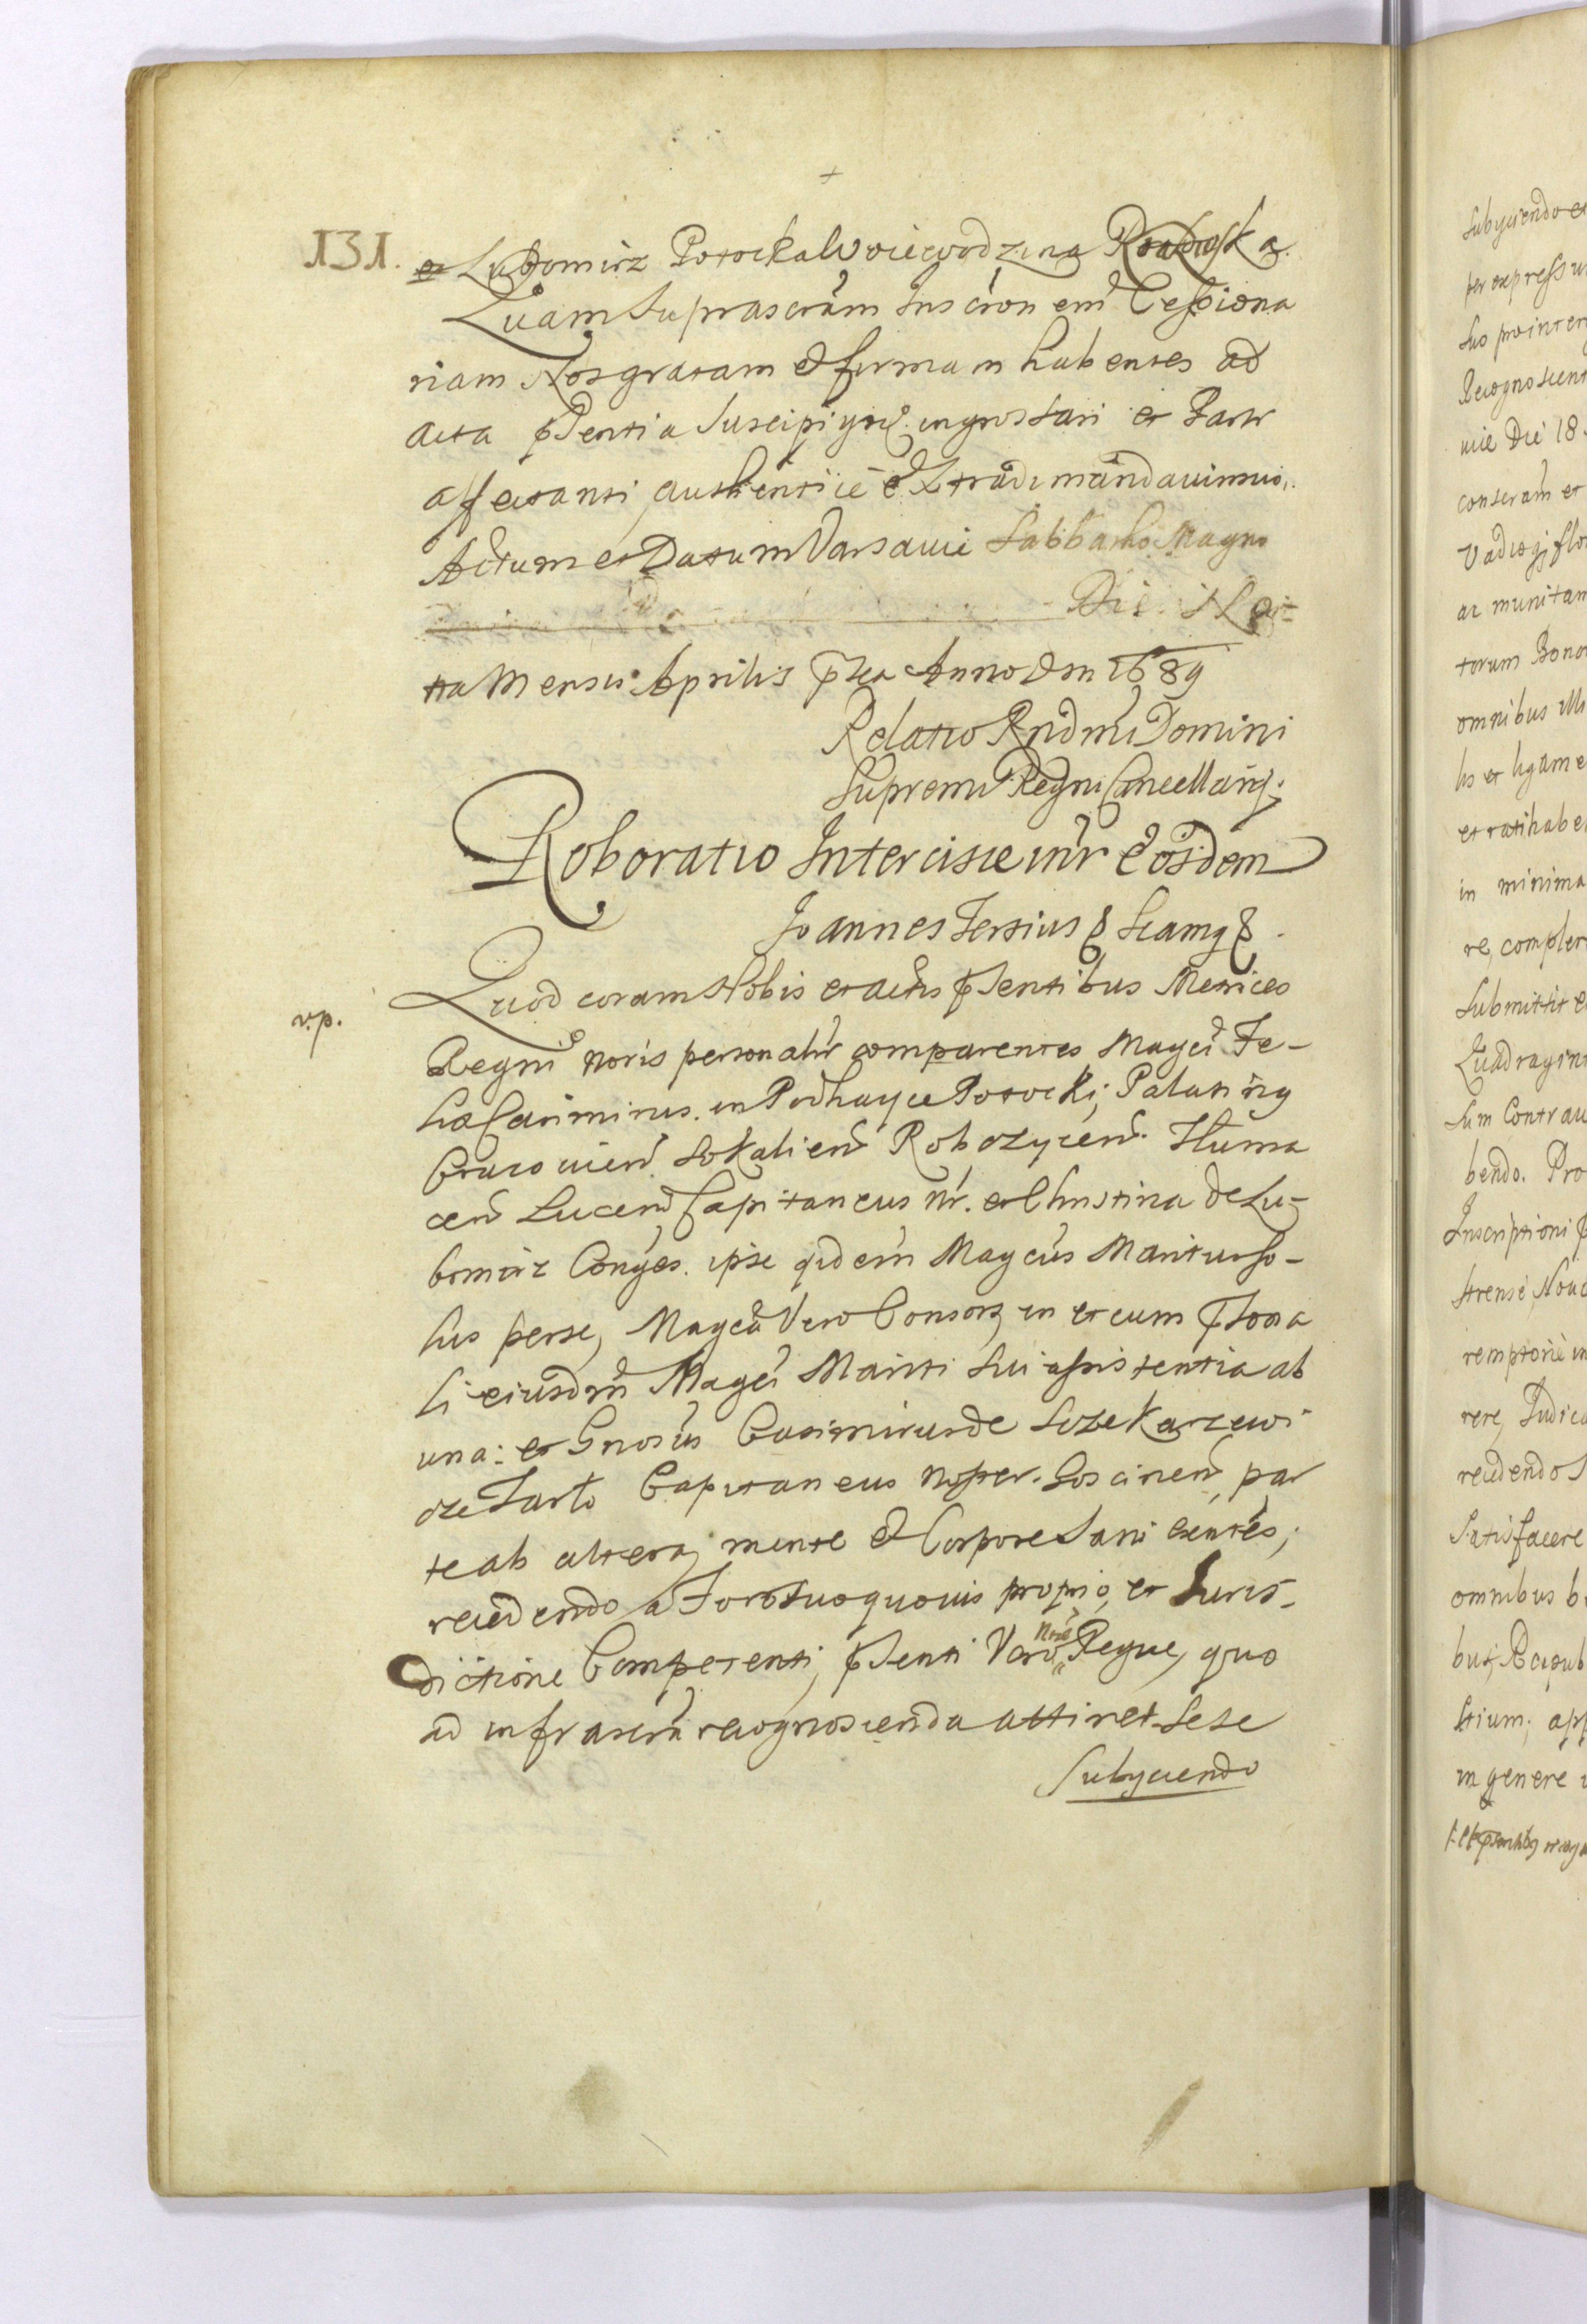 131.
et Lubomirz Potocka Woiewodzina Krakowska.
Quam Suprascrãm Inscrõnem Cessiona
riam Nos gratam et firmam habentes ad
acta pñsentia suscipi ingrossari et Parti
affectanti, authenticè extradi mandavimus.
Actum et Datum Varsavie Sabbatho Magno
Die Nona
na Mensis Aprilis Anno Dñi 1689
Relatio Rñdmi Domini
Supremi Regni Cancellarij.
Roboratio Intercisie intr Eosdem
Joannes Tertius & Scamg &.
v.p.
Quod coram Nobis et actis pñsentibus Metrices
Regni nõris personalr comparentes Magci Fe-
lix Casimirus in Podhayce Potocki, Palating
Cracovien Sokalien Robczycen. Tluma
cen Lucen Capitaneus nr. et Christina de Lu-
bomirz Conges. ipse qdem Magcus Maritus so-
lus per se, Magca Vero Consorz in et cum
li eiusdem Magci Mariti sui assistentia ab
una: et Gnosus Casimirus de Sczekarzewi
cze Tarlo Capitaneus noster. Goscinen, par
te ab altera, mente et Corpore sani exentes,
recedendo a Foro suo quovis proprio, et Juris-
dictione Competenti, pñsenti Vero Nrae Regue, quo
ad infrascrã recognoscenda attinet sese
Subyciendo
Subyciendo et
per express
suo pro inter
Recognoscen
vie Die 18.
conscrãm et
Vadiogj flo
ac munitam
torum Bono
omnibus illi
lis et ligame
et ratihabe
in minima
re, compler
Submittit e
Quadragin
sum Contrau
bendo. Pro
Inscriptioni
strense, Nouc
remptoriè in
rere, Judica
recedendo
Satisfacere
omnibus b
bus, Reipub
stium, app
in genere